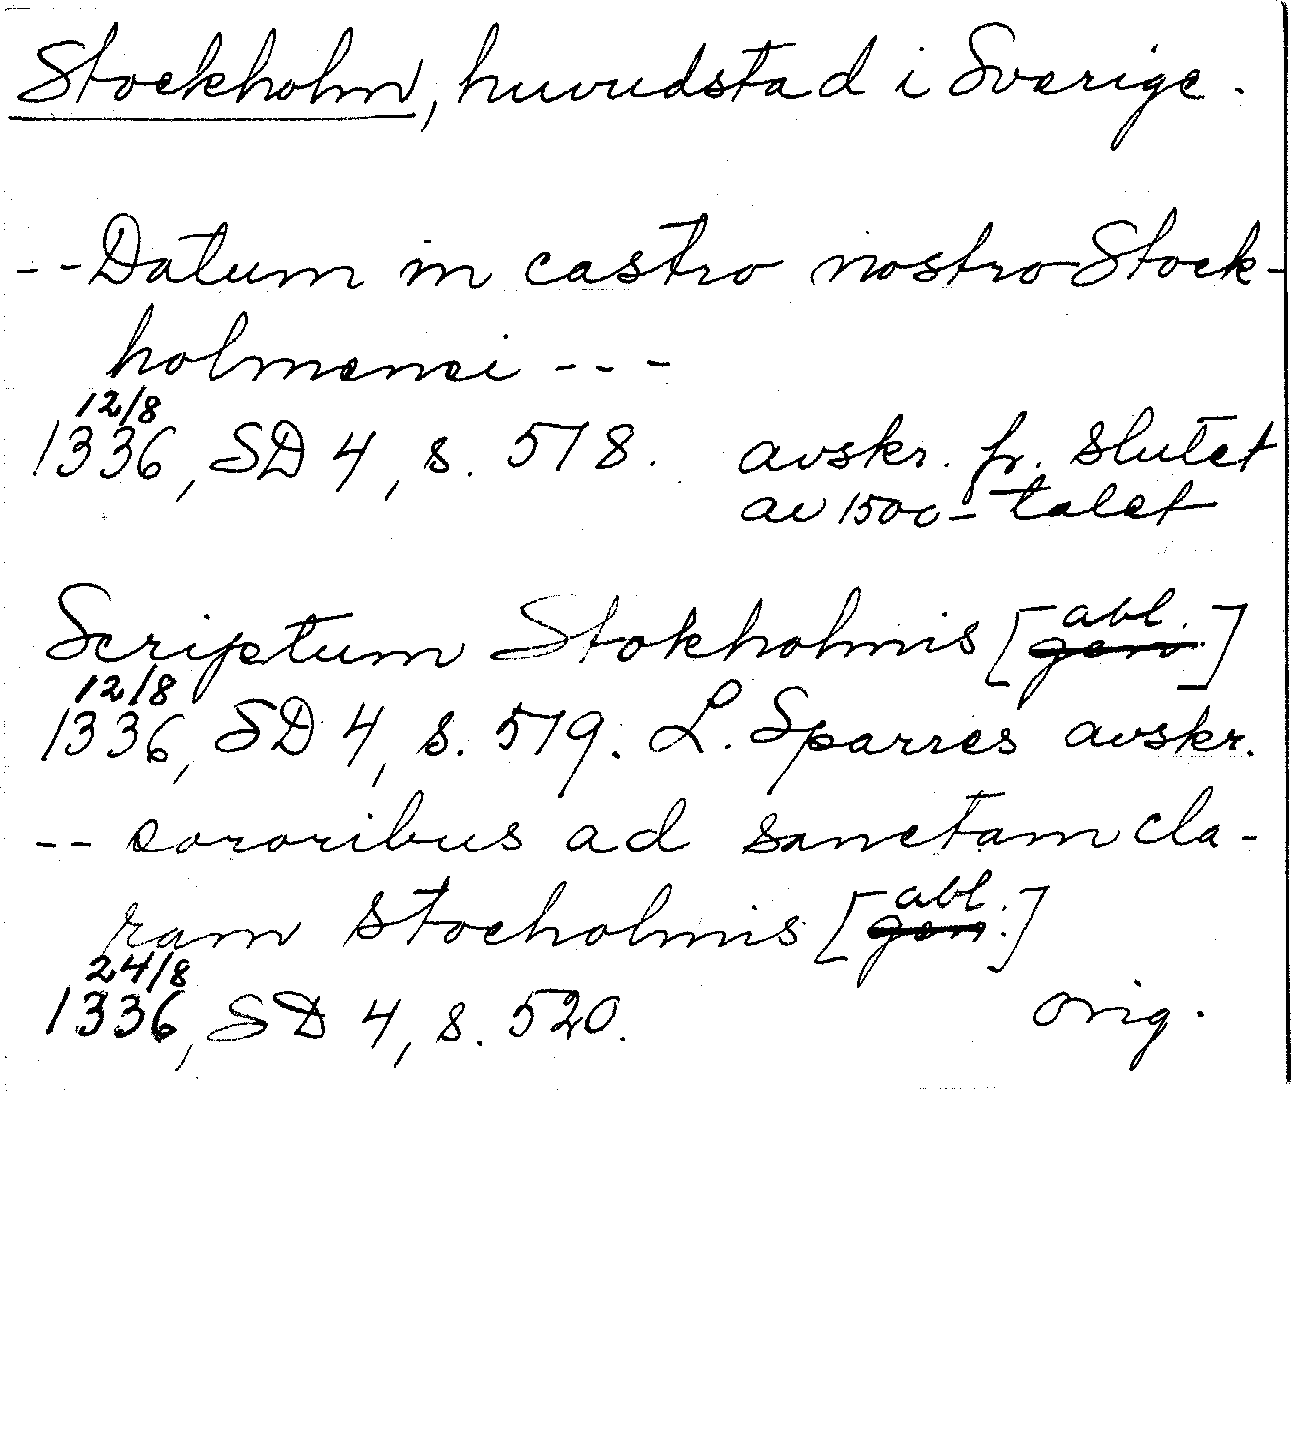 Stockholm, huvudstad i Sverige.
--Datum in castro nostro Stock-
holmensi ---
12/8
1336, SD 4, s. 518. avskr. fr. slutet
av 1500-talet
Scriptum Stokholmis [gen. abl.]
12/8
1336, SD 4, s. 519. L. Sparres avskr.
-- sororibus ad sanctam cla-
ram stocholmis [gen. abl.]
24/8
1336, SD 4, s. 520. orig.